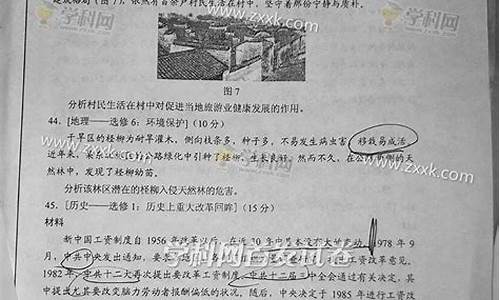 是成格局(图7),依然有百余户村民生活在村中,坚守着那份宁静与质朴。
图7
分析村民生活在村中对促进当地旅游业健康发展的作用。
44. [地理——选修6:环境保护](10分)
干旱区的柽柳为耐旱灌木,侧向枝条多,种子多,不易发生病虫害,移栽易成活
近年来,某
路绿化中引种了柽柳,生长良好。然而不久,在公路
侧的天
然林中,发现了柽柳幼苗。
分析该林区潜在的柽柳入侵天然林的危害。
45. [历史——选修1:历史上重大改革回眸](15分)
材料
新中国工资制度自1956年改革以后,在近30年中基本没有大的变动。1978年9
月,中共中央发出通知,要
工资改革意见。
1982年,中共十二大再次提出要改革工资制度。中共十二届三中全会通过有关决定,其
中提出尤其要改变脑力劳动者报酬偏低的状况。随后,中央决定于1985年进行工资改
学科网
www.zxxk.com
学科网
www.zxxk.com
www.zxxk.com
学科网首发试卷